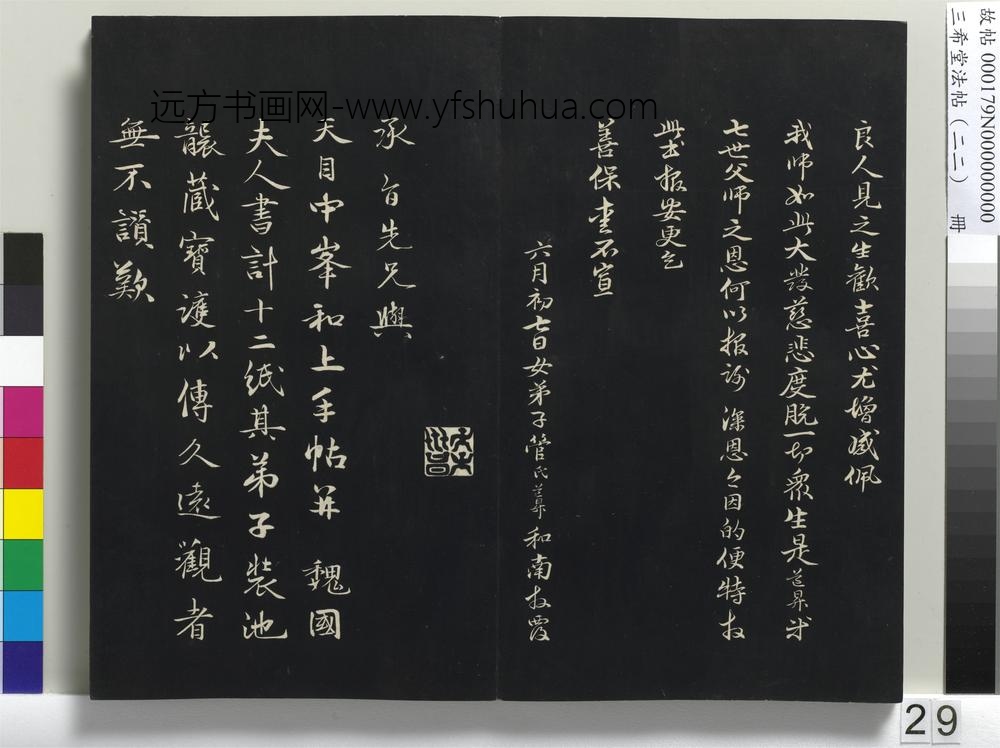 良人見之生歡喜心尤增感佩
我师如此大發慈悲度脱一切眾生是道昇半
七世父师之恩何以报谢深恩今因的便特拜
此书报安更乞
善保重不宣
六月初七日女弟子管氏道昇和南拜覆
承旨先兄與
天目中峯和上手帖并魏國
夫人書計十二紙其弟子裝池
襲藏寶護以傳久遠觀者
無不讚歎
远方书画网-www.yfshuhua.com
故帖 000179N000000000
三希堂法帖（二二） 冊
29